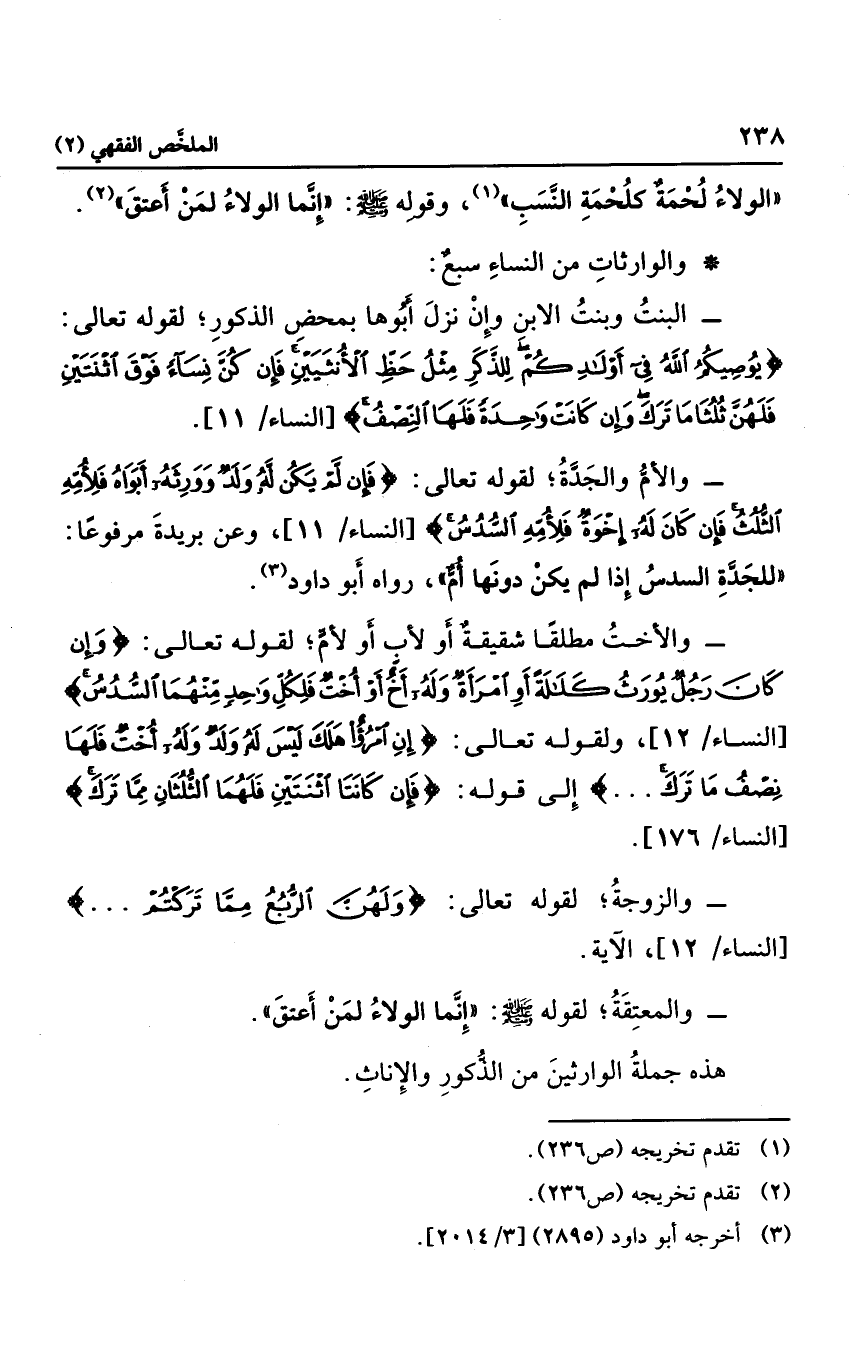 ٢٣٨
الملخَّص الفقهي (٢)
«الولاءُ لُحْمَةٌ كلُحْمَةِ النَّسَبِ»(١)، وقولِه ﷺ: «إِنَّما الولاءُ لمَنْ أَعتقَ»(٢).
* والوارثاتِ من النساءِ سبعٌ:
ـ البنتُ وبنتُ الابنِ وإِنْ نزلَ أَبُوها بمحضِ الذكورِ؛ لقوله تعالى:
﴿يُوصِيكُمُ ٱللَّهُ فِىٓ أَوْلَـٰدِكُمْ ۖ لِلذَّكَرِ مِثْلُ حَظِّ ٱلْأُنثَيَيْنِ ۚ فَإِن كُنَّ نِسَآءً فَوْقَ ٱثْنَتَيْنِ
فَلَهُنَّ ثُلُثَا مَا تَرَكَ ۖ وَإِن كَانَتْ وَٰحِدَةً فَلَهَا ٱلنِّصْفُ ۚ﴾ [النساء/ ١١].
ـ والأمُّ والجَدَّةُ؛ لقوله تعالى: ﴿فَإِن لَّمْ يَكُن لَّهُۥ وَلَدٌ وَوَرِثَهُۥٓ أَبَوَاهُ فَلِأُمِّهِ
ٱلثُّلُثُ ۚ فَإِن كَانَ لَهُۥٓ إِخْوَةٌ فَلِأُمِّهِ ٱلسُّدُسُ ۚ﴾ [النساء/ ١١]، وعن بريدةَ مرفوعًا:
«للجَدَّةِ السدسُ إِذا لم يكنْ دونَها أُمٌّ»، رواه أَبو داود(٣).
ـ والأختُ مطلقًا شقيقةٌ أَو لأبٍ أَو لأمٍّ؛ لقوله تعالى: ﴿وَإِن
كَانَ رَجُلٌ يُورَثُ كَلَـٰلَةً أَوِ ٱمْرَأَةٌ وَلَهُۥٓ أَخٌ أَوْ أُخْتٌ فَلِكُلِّ وَٰحِدٍ مِّنْهُمَا ٱلسُّدُسُ ۚ﴾
[النساء/ ١٢]، ولقوله تعالى: ﴿إِنِ ٱمْرُؤٌا۟ هَلَكَ لَيْسَ لَهُۥ وَلَدٌ وَلَهُۥٓ أُخْتٌ فَلَهَا
نِصْفُ مَا تَرَكَ ۚ ...﴾ إِلى قوله: ﴿فَإِن كَانَتَا ٱثْنَتَيْنِ فَلَهُمَا ٱلثُّلُثَانِ مِمَّا تَرَكَ ۚ﴾
[النساء/ ١٧٦].
ـ والزوجةُ؛ لقوله تعالى: ﴿وَلَهُنَّ ٱلرُّبُعُ مِمَّا تَرَكْتُمْ ...﴾
[النساء/ ١٢]، الآية.
ـ والمعتِقَةُ؛ لقوله ﷺ: «إِنَّما الولاءُ لمَنْ أَعتقَ».
هذه جملةُ الوارثينَ من الذُّكورِ والإناثِ.
(١) تقدم تخريجه (ص٢٣٦).
(٢) تقدم تخريجه (ص٢٣٦).
(٣) أخرجه أبو داود (٢٨٩٥) [٣/ ٢٠١٤].